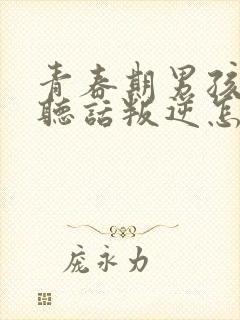 青春期男孩
聽話叛逆怎
庞永力